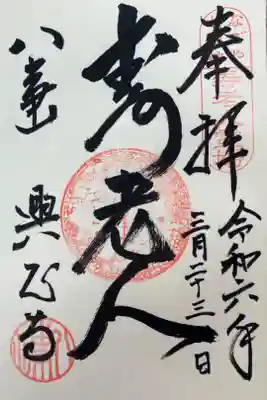 奉拝
令和六年
三月二十三日
寿老人
八事山
興正寺